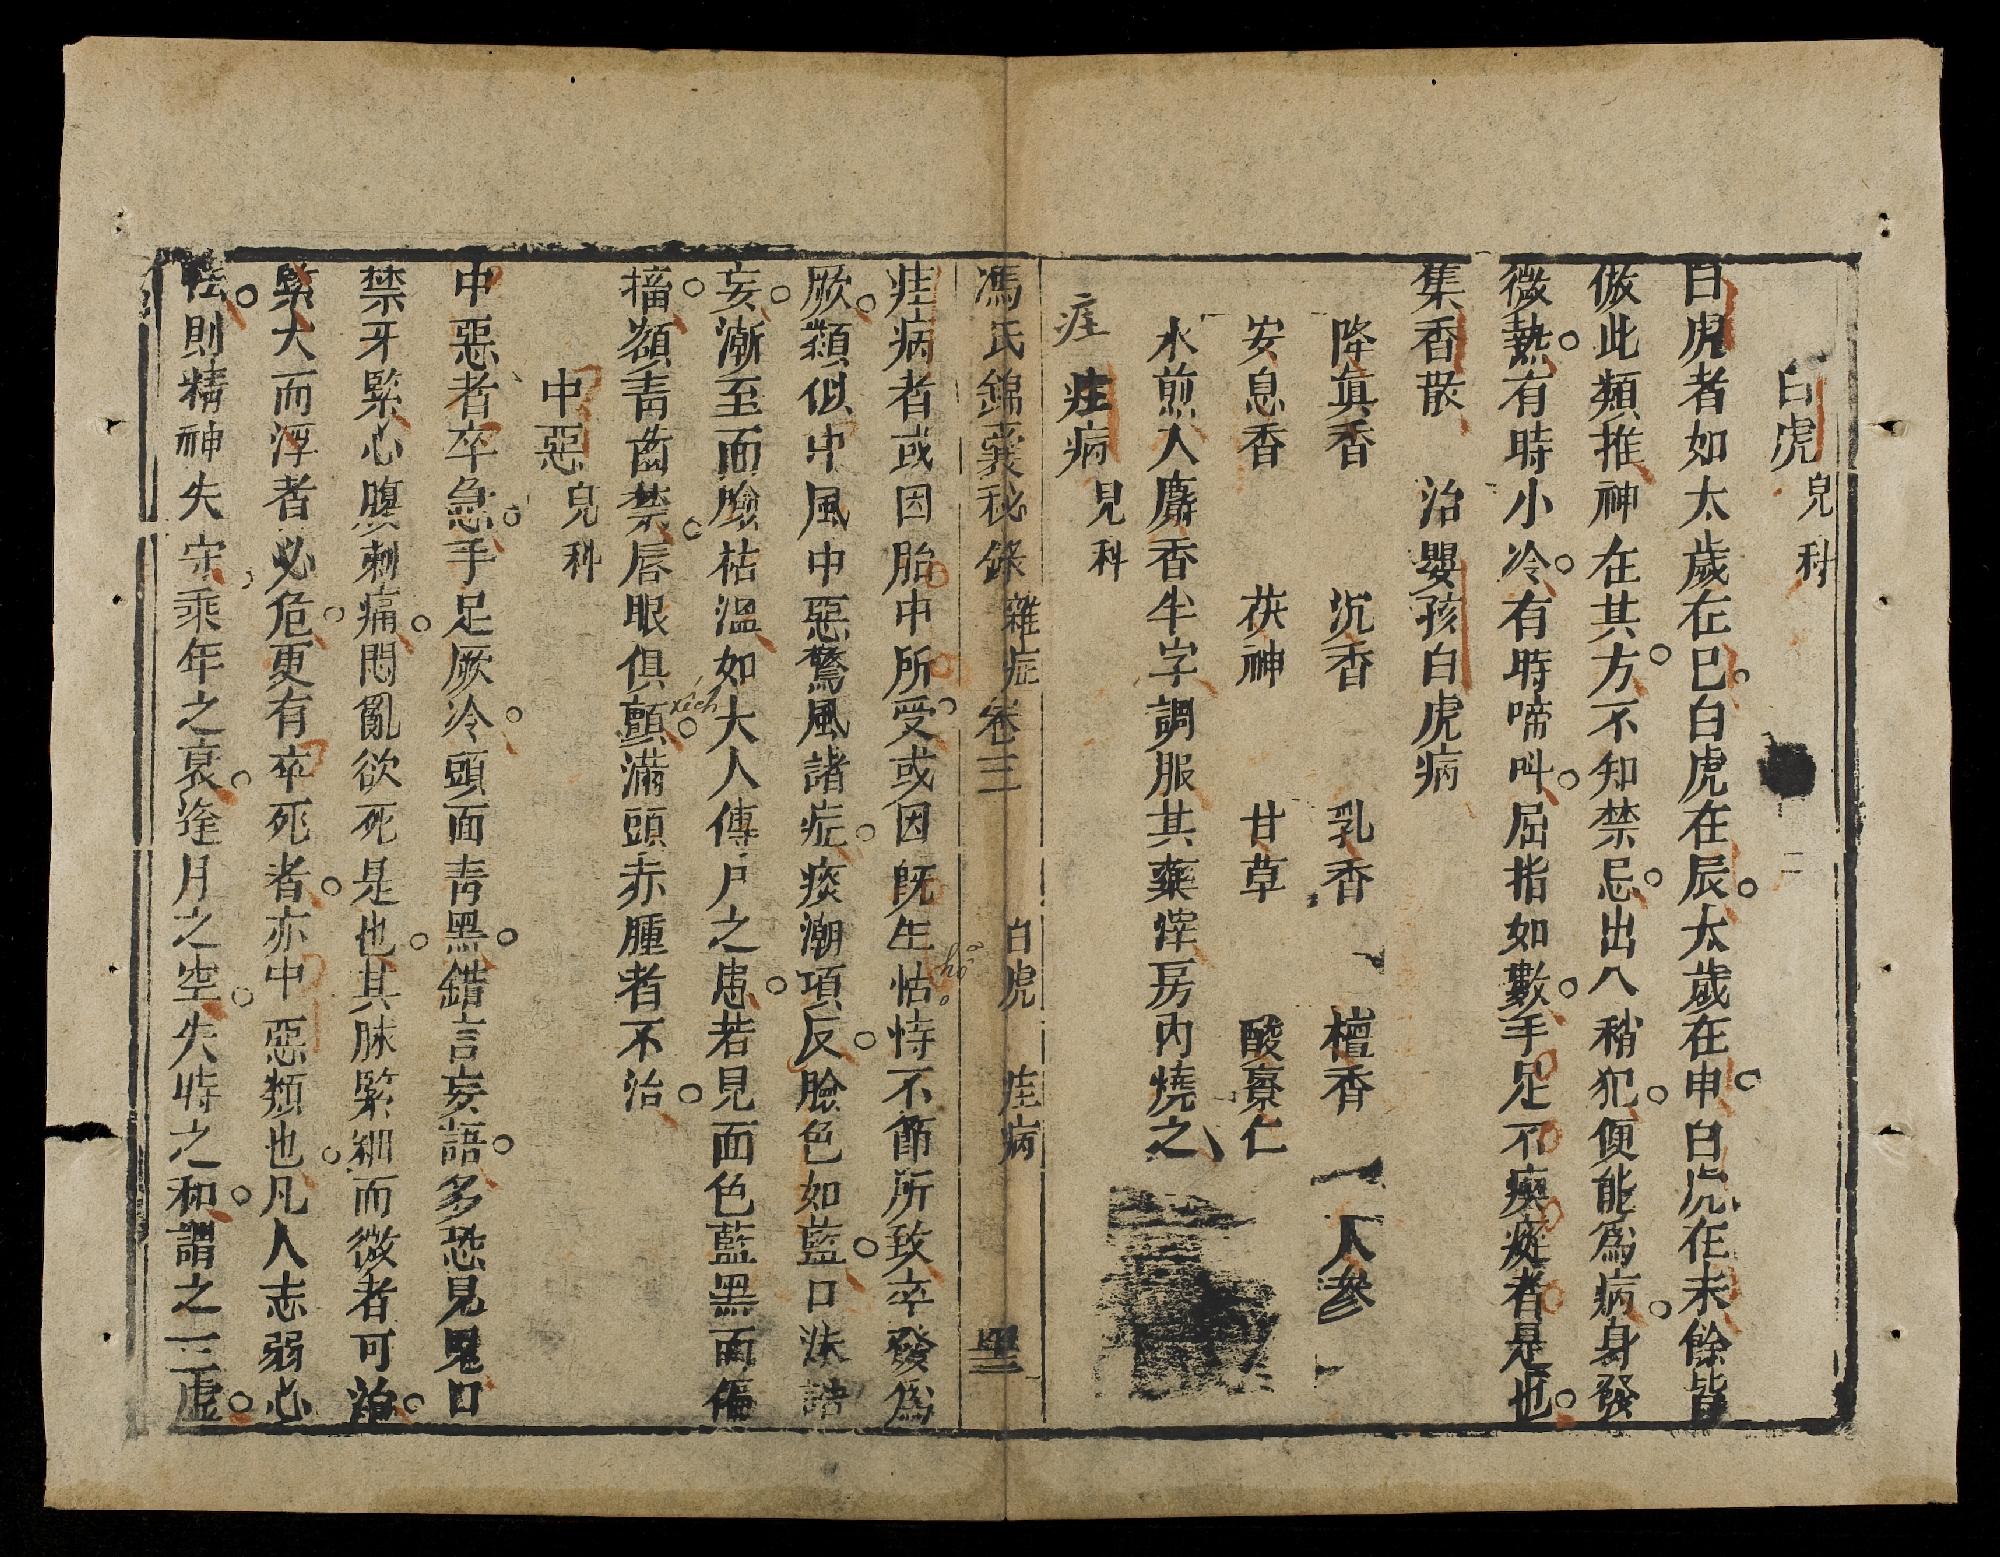 白虎 兒科
白虎者如太歲在巳白虎在辰太歲在申白虎在未餘皆
倣此類推神在其方不知禁忌出入稍犯便能為病身發
微熱有時小冷有時啼呌屈指如數手足不瘈瘲者是也
集香散 治嬰孩白虎病
降眞香 沉香 乳香 檀香 人參
安息香 茯神 甘草 酸棗仁
水煎入麝香半字調服其藥滓房内燒之
疰 疰病 見科
馮氏錦囊秘錄 雜症 卷三 白虎 疰病 四三
疰病者或因胎中所受或因既生怙恃不節所致卒發為
hộ
厥類似中風中惡驚風諸症痰潮項反臉色如藍口法語
妄漸至面臉枯溫如大人傳尸之患若見面色藍黑而偏
搐額青齒禁唇眼俱顫滿頭赤腫者不治
xích
中惡 兒科
中惡者卒急手足厥冷頭面青黑錯言妄語多恐見鬼口
禁牙緊心腹刺痛悶亂欲死是也其脉緊細而微者可治
緊大而浮者必危更有卒死者亦中惡類也凡人志弱心
怯則精神失守乘年之衰逢月之空失時之和謂之三虛